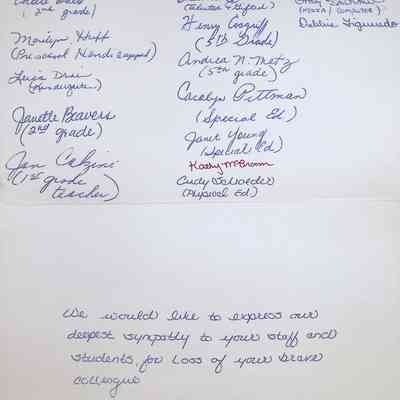 (2nd grade)
Marilyn Huff
(Preschool Handicapped)
(Kindergarten)
Janette Beavers
(2nd grade)
Jan
(1st grade
teacher)
Henry Cosgriff
(5th Grade)
Andrea N. Metz
(5th grade)
Carolyn Pittman
(Special Ed)
Janet Young
(Special Ed)
Kathy McBroom
Cindy Schroeder
(Physical Ed)
Debbie Figueredo
We would like to express our
deepest sympathy to your staff and
students, for Loss of your brave
colleague